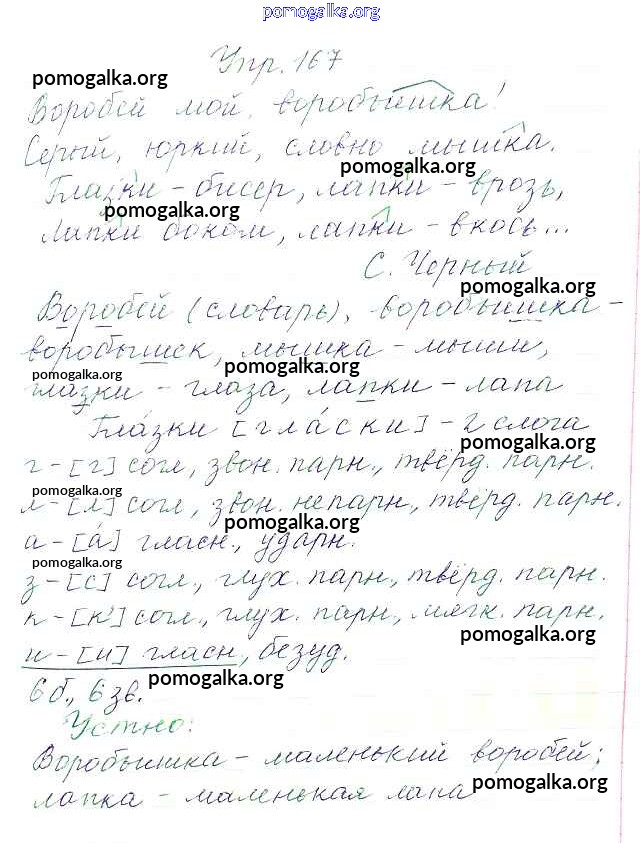 pomogalka.org
Упр. 167
pomogalka.org
Воробей мой, воробьишка!
Серый, юркий, словно мышка.
pomogalka.org
Глазки – бисер, лапки – врозь,
pomogalka.org
Лапки боком, лапки – вкось...
С. Черный
pomogalka.org
Воробей (словарь), воробьишка –
воробьишек, мышка – мыши,
pomogalka.org
pomogalka.org
глазки – глаза, лапки – лапа
Глазки [гла́ски] – 2 слога
pomogalka.org
г – [г] согл., звон. парн., твёрд. парн.
pomogalka.org
л – [л] согл., звон. непарн., твёрд. парн.
pomogalka.org
а – [а́] гласн., ударн.
pomogalka.org
з – [с] согл., глух. парн., твёрд. парн.
к – [к'] согл., глух. парн., мягк. парн.
pomogalka.org
и – [и] гласн., безуд.
6 б., 6 зв.
pomogalka.org
Устно:
Воробьишка – маленький воробей;
pomogalka.org
лапка – маленькая лапа